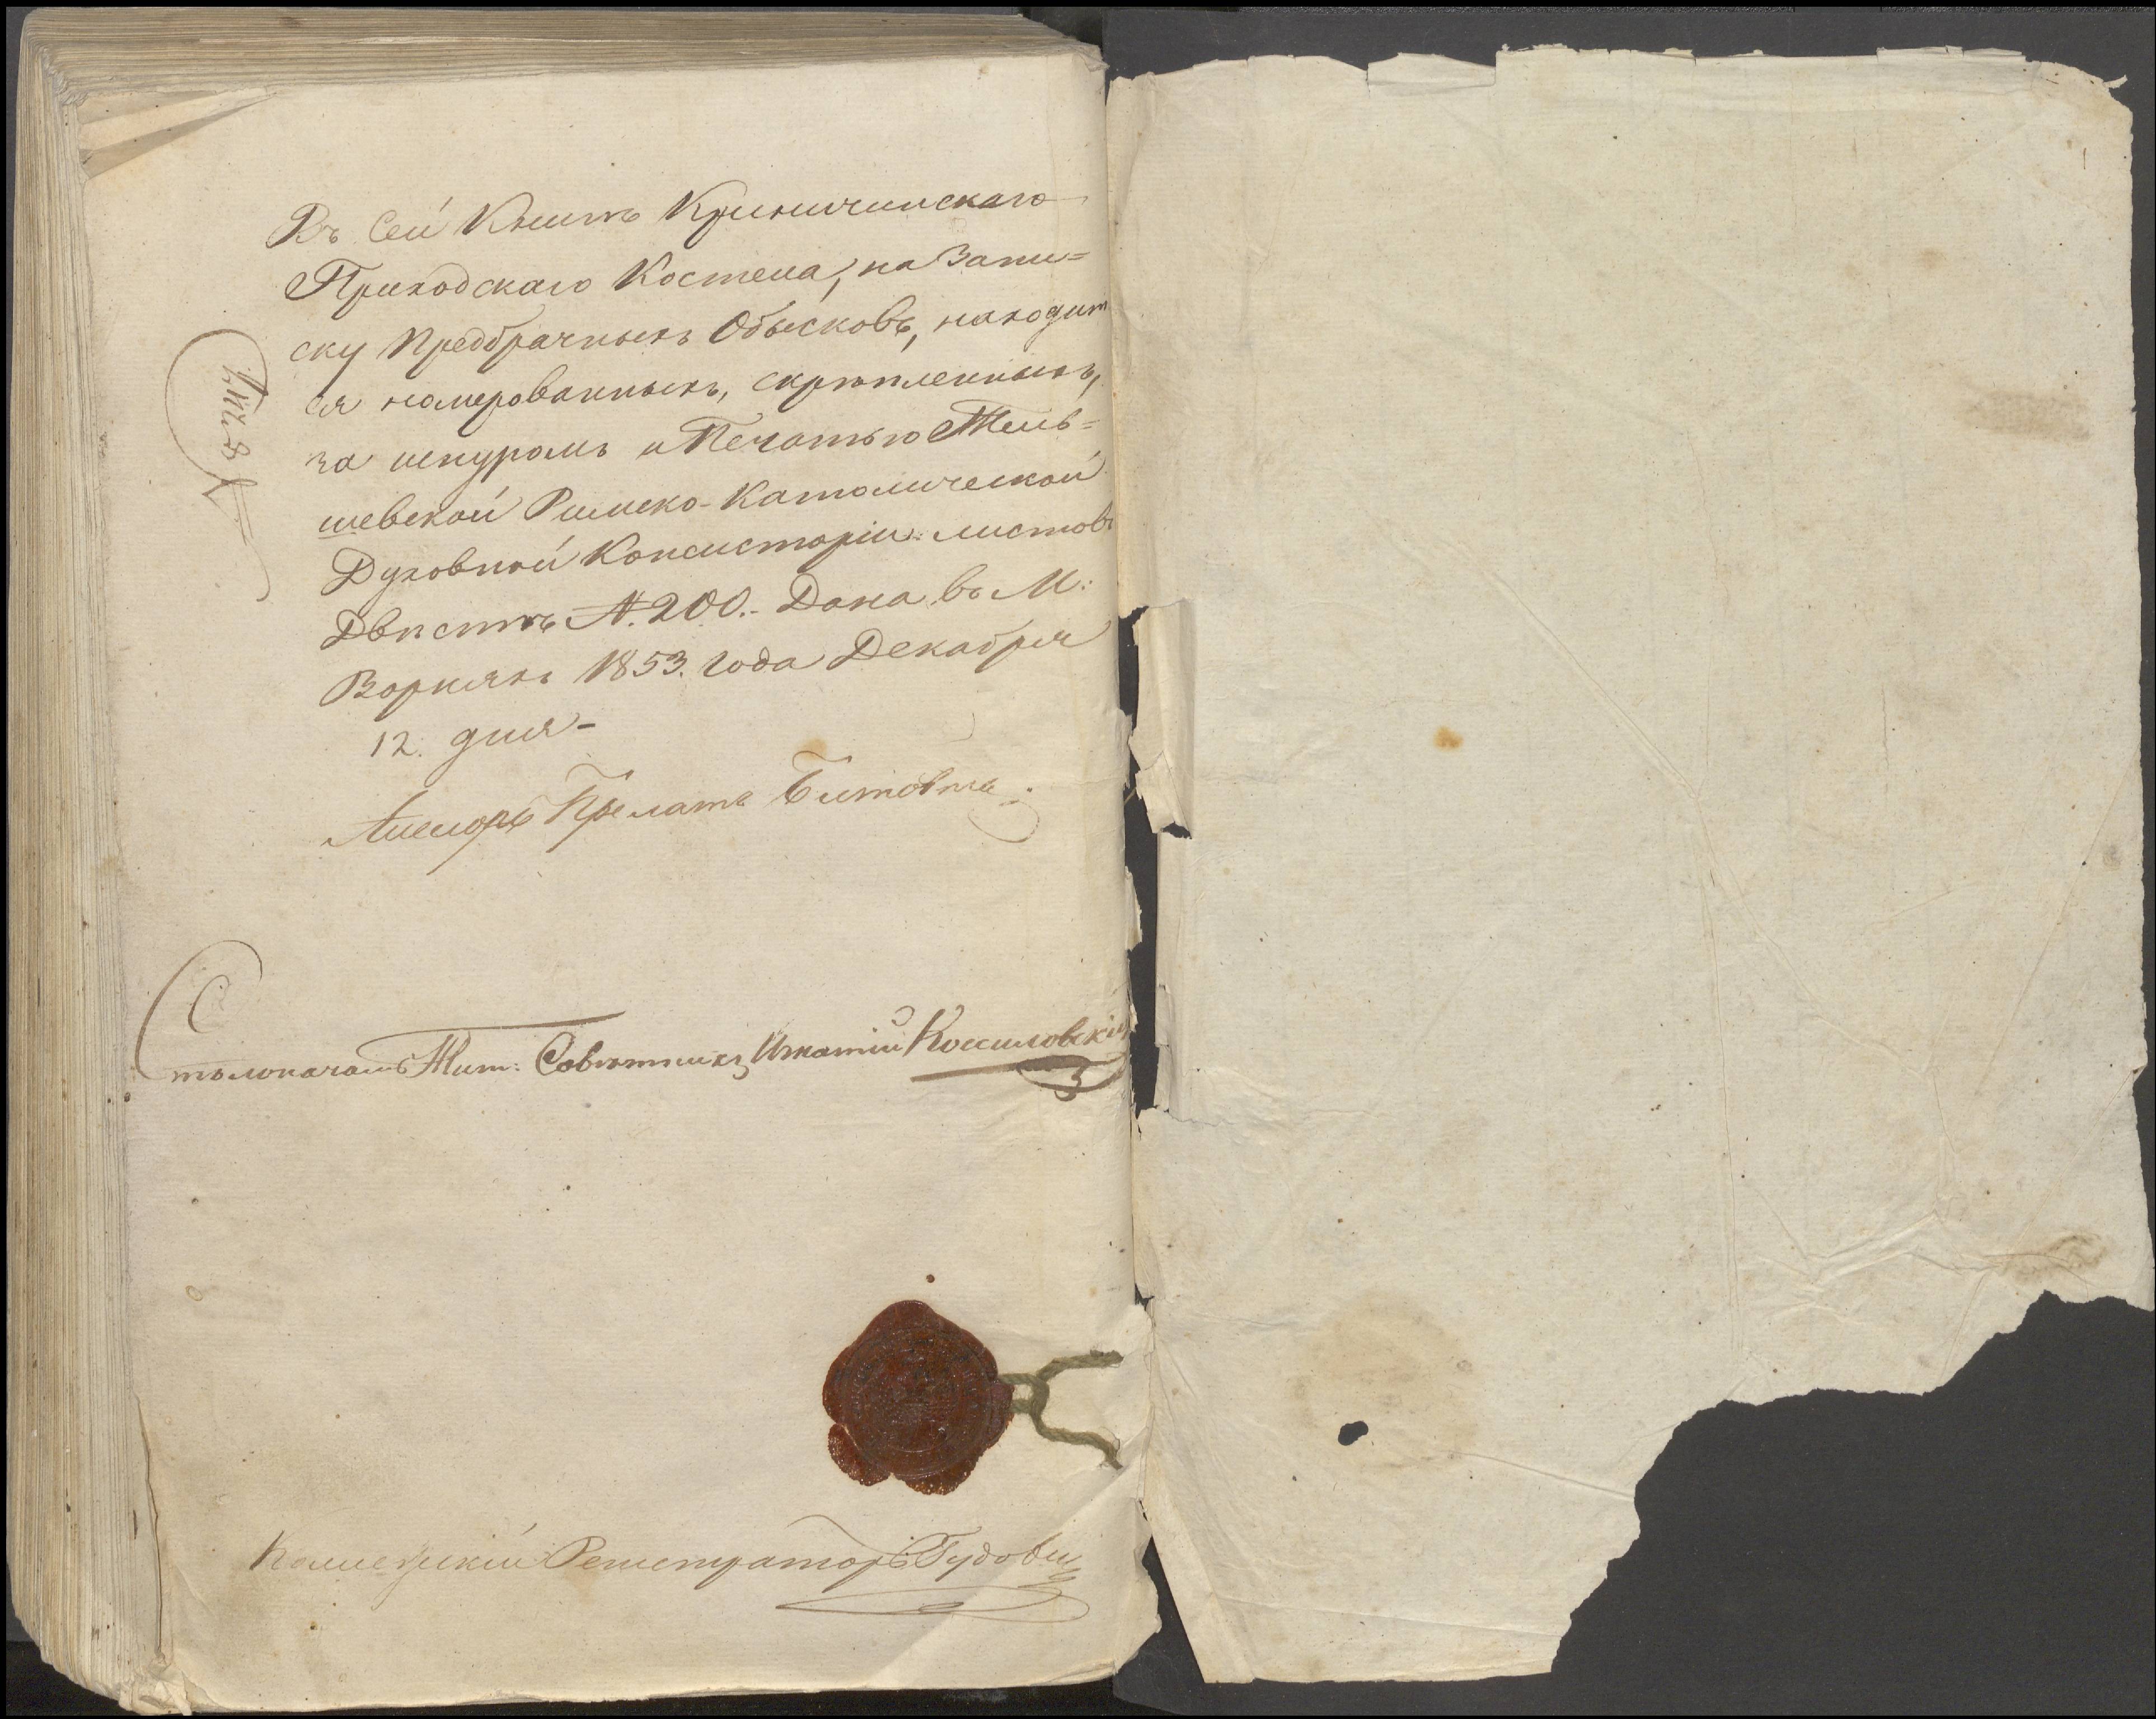 Въ Сей Книгѣ Криничинскаго
Приходскаго Костела, на Запи=
ску Предбрачныхъ Обысковъ, находит
ся номерованныхъ, скрѣпленныхъ,
за шнуромъ и Печатью Тель=
шевской Римско-Католической
Духовной Консисторіи листовъ
Двѣстѣ N. 200. - Дана въ М:
Ворняхъ 1853. года Декабря
12. дня -
Ассесоръ Прелатъ Битовтъ.
Столоначаль: Тит: Совѣтникъ Игнатій Коссиловскій
Коллежскій Регистраторъ Гудович